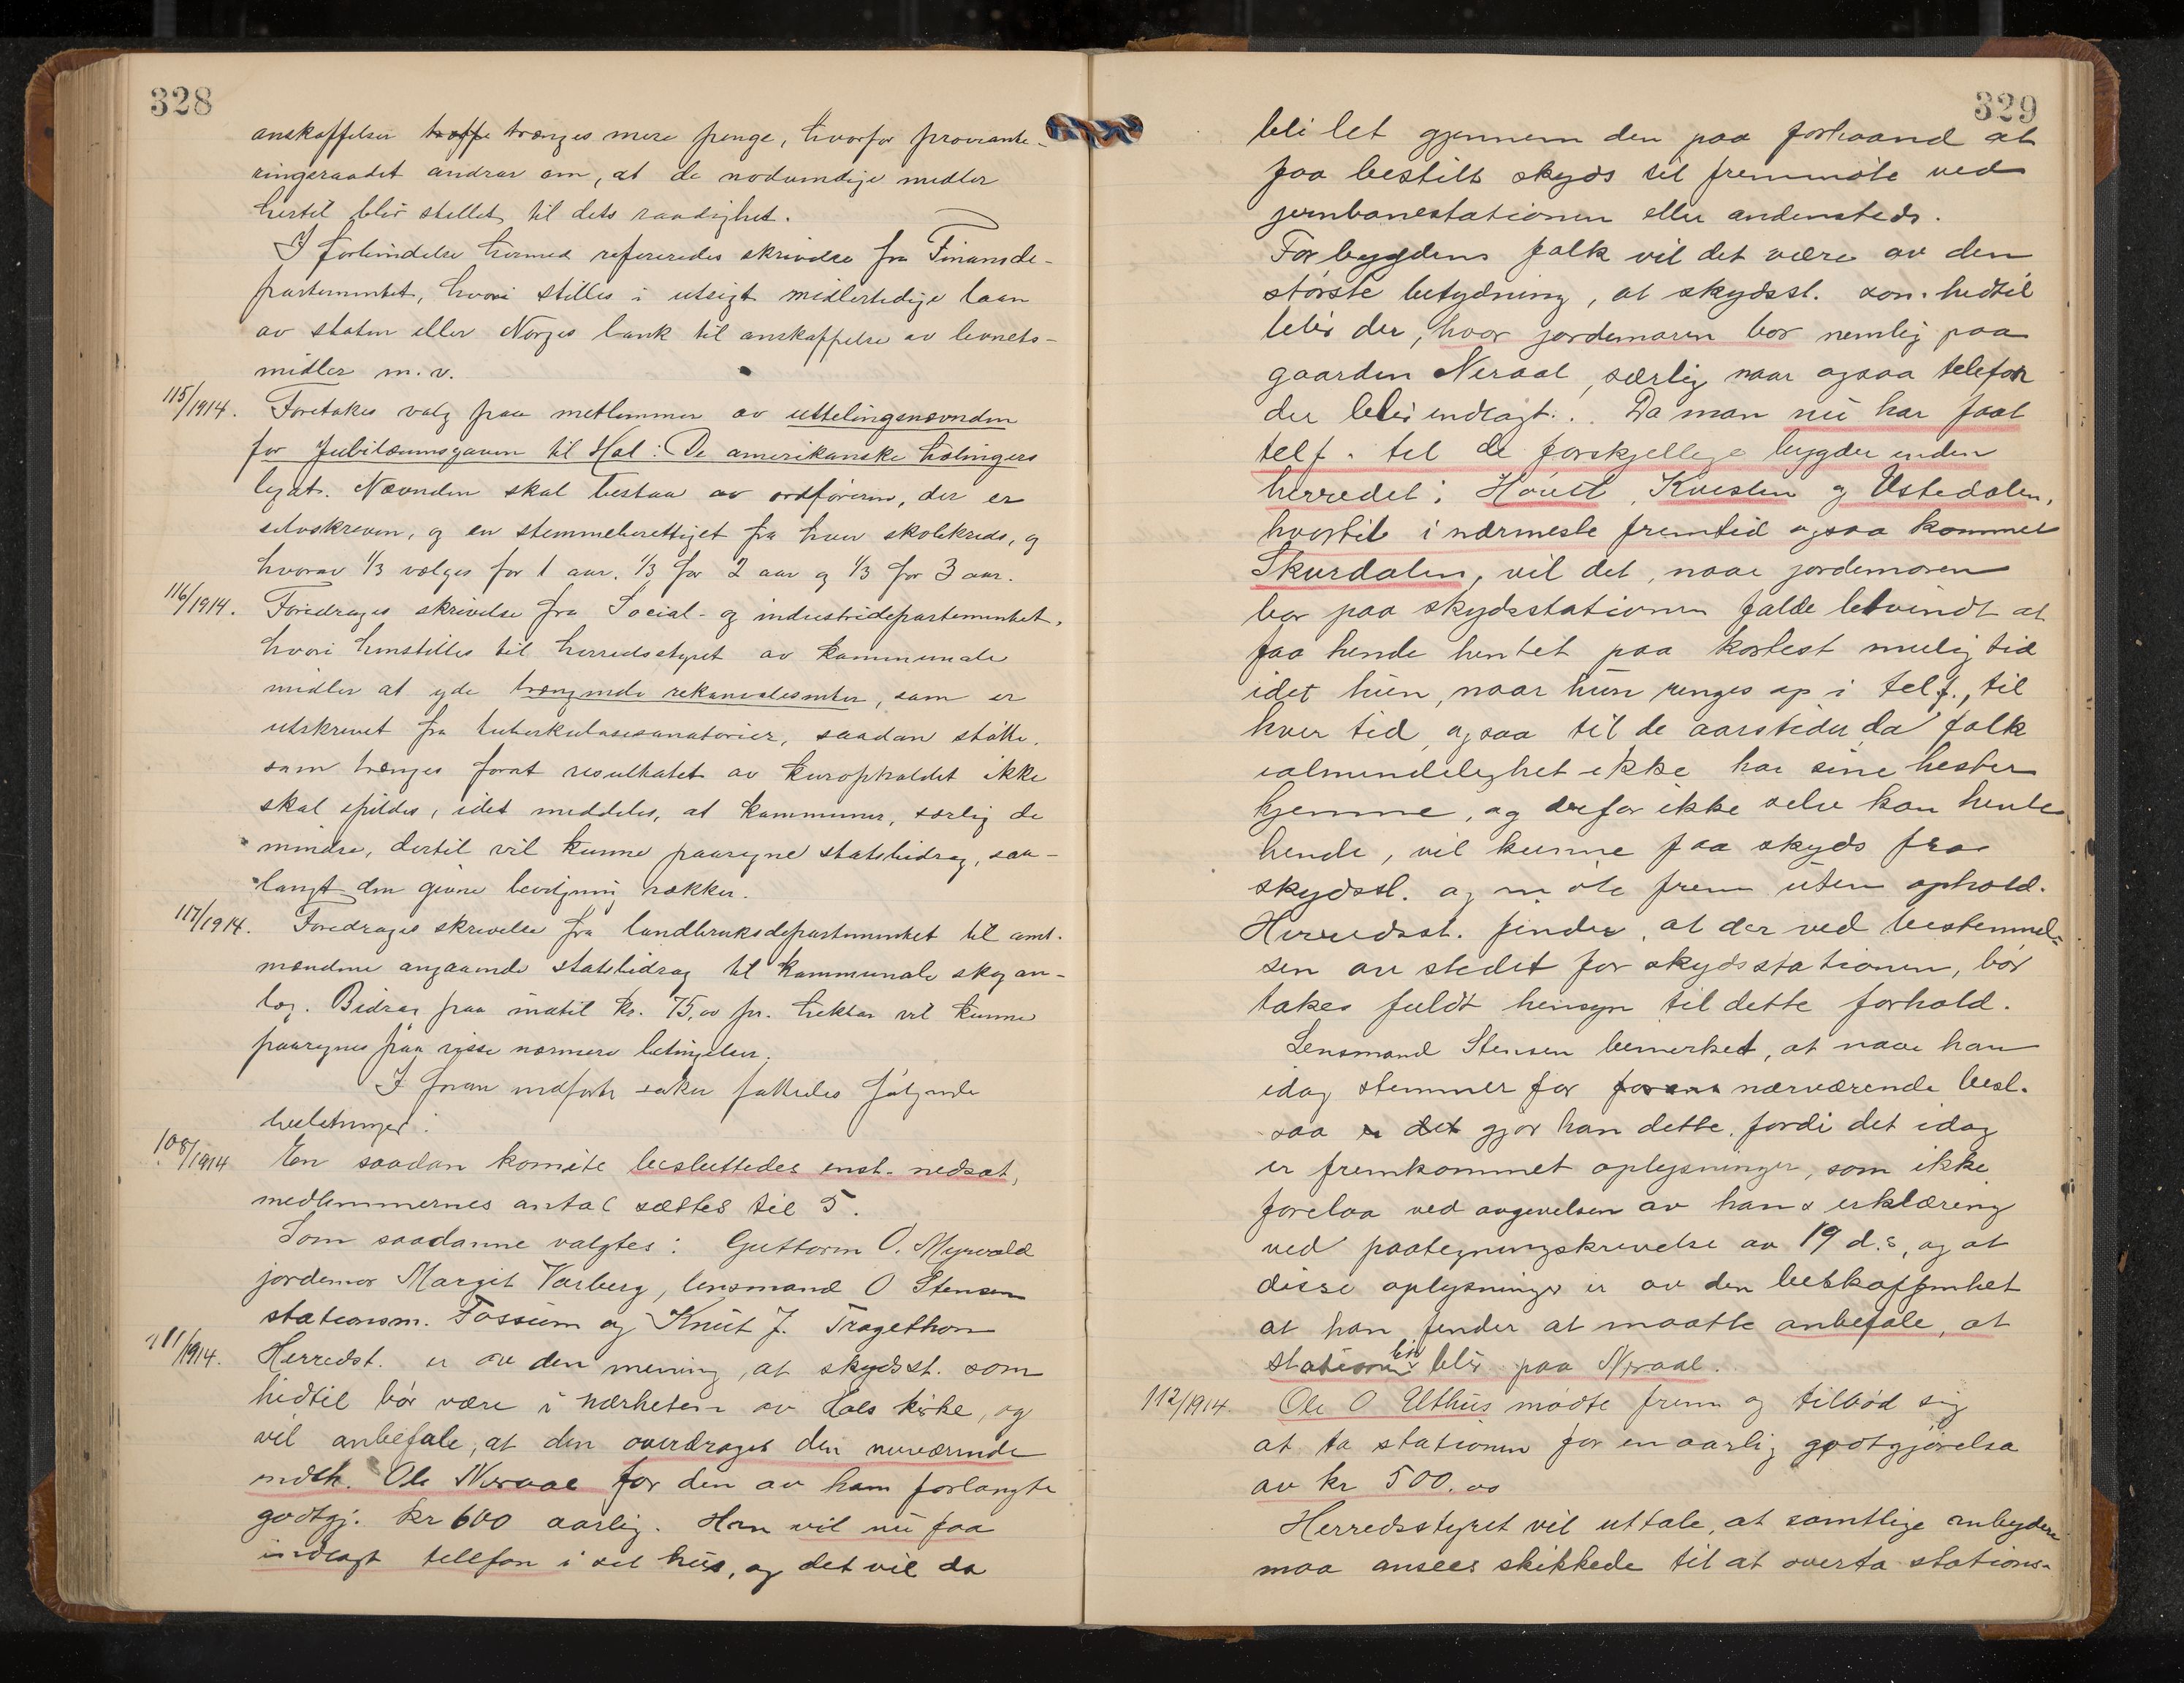 328
anskaffelser troffe trænges mere penge, hvorfor proviante-
ringsraadet andrar om, at de nødvendige midler
hertil blir stillet til dets raadighet.
I forbindelse hermed refereredes skrivelse fra Finansde-
partementet, hvori stilles i utsigt midlertidige laan
av staten eller Norges bank til anskaffelse av levnets-
midler m.v.
115/1914. Foretakes valg paa medlemmer av uttelingsnævnden
for Jubilæumsgaven til Hol: De amerikanske hølingers
legat. Nævnden skal bestaa av ordføreren, der er
selvskreven, og en stemmeberettiget fra hver skolekreds, og
hvorav 1/3 vælges for 1 aar, 1/3 for 2 aar og 1/3 for 3 aar.
116/1914. Foredrages skrivelse fra Social- og industridepartementet,
hvori henstilles til herredsstyret av kommunale
midler at yde trængende rekonvalesenter, som er
utskrevet fra tuberkulosesanatorier, saadan støtte,
som trænges forat resultatet av kuropholdet ikke
skal spildes, idet meddeles, at kommuner, særlig de
mindre, dertil vil kunne paaregne statsbidrag, saa-
langt den givne bevilgning rækker.
117/1914. Foredrages skrivelse fra landbruksdepartementet til amt-
mændene angaaende statsbidrag til kommunale skogan-
læg. Bidrag paa indtil kr. 75,00 pr. hektar vil kunne
paaregnes paa visse nærmere betingelser.
I foran indførte saker fattedes følgende
beslutninger:
108/1914 En saadan komite besluttedes enst. nedsat,
medlemmernes antal sættes til 5.
Som saadanne valgtes: Guttorm O. Myrvold
jordemor Margit Varberg, lensmand O Stensen
stationsm. Fossum og Knut J. Tragethon
111/1914. Herredst. er av den mening, at skydsst. som
hidtil bør være i nærheten av Hols kirke, og
vil anbefale, at den overdrages den nuværende
indeh. Ole Neraal for den av ham forlangte
godtgj. kr 600 aarlig. Han vil nu faa
indlagt tellefon i sit hus, og det vil da
329
bli let gjennem den paa forhaand at
faa bestilt skyds til fremmøte ved
jernbanestationen eller andensteds.
For bygdens folk vil det være av den
største betydning, at skydsst. som hidtil
blir der, hvor jordemoren bor nemlig paa
gaarden Neraal, særlig naar ogsaa telefon
der blir indlagt. Da man nu har faat
telf. til de forskjellige bygder inden
herredet: Hovet, Kvisten og Ustedalen,
hvortil i nærmeste fremtid ogsaa kommer
Skurdalen, vil det, naar jordemoren
bor paa skydsstationen falde letvindt at
faa hende hentet paa kortest mulig tid
idet hun, naar hun ringes op i telf., til
hver tid, ogsaa til de aarstider da folk
ialmindelighet ikke har sine hester
hjemme, og derfor ikke selv kan hente
hende, vil kunne faa skyds fra
skydsst. og møte frem uten ophold.
Herredsst. finder, at der ved bestemmel-
sen av stedet for skydsstationen, bør
takes fuldt hensyn til dette forhold.
Lensmand Stensen bemerket, at naar han
idag stemmer for nærværende besl.
saa er det gjør han dette, fordi det idag
er fremkommet oplysninger, som ikke
forelaa ved avgivelsen av hans erklæring
ved paategningskrivelse av 19 d.s, og at
disse oplysninger er av den beskaffenhet
at han finder at maatte anbefale, at
stationen blir paa Neraal.
112/1914. Ole O Uthus mødte frem og tilbød sig
at ta stationen for en aarlig godtgjørelse
av kr 500.00
Herredsstyret vil uttale, at samtlige anbydere
maa ansees skikkede til at overta stations-